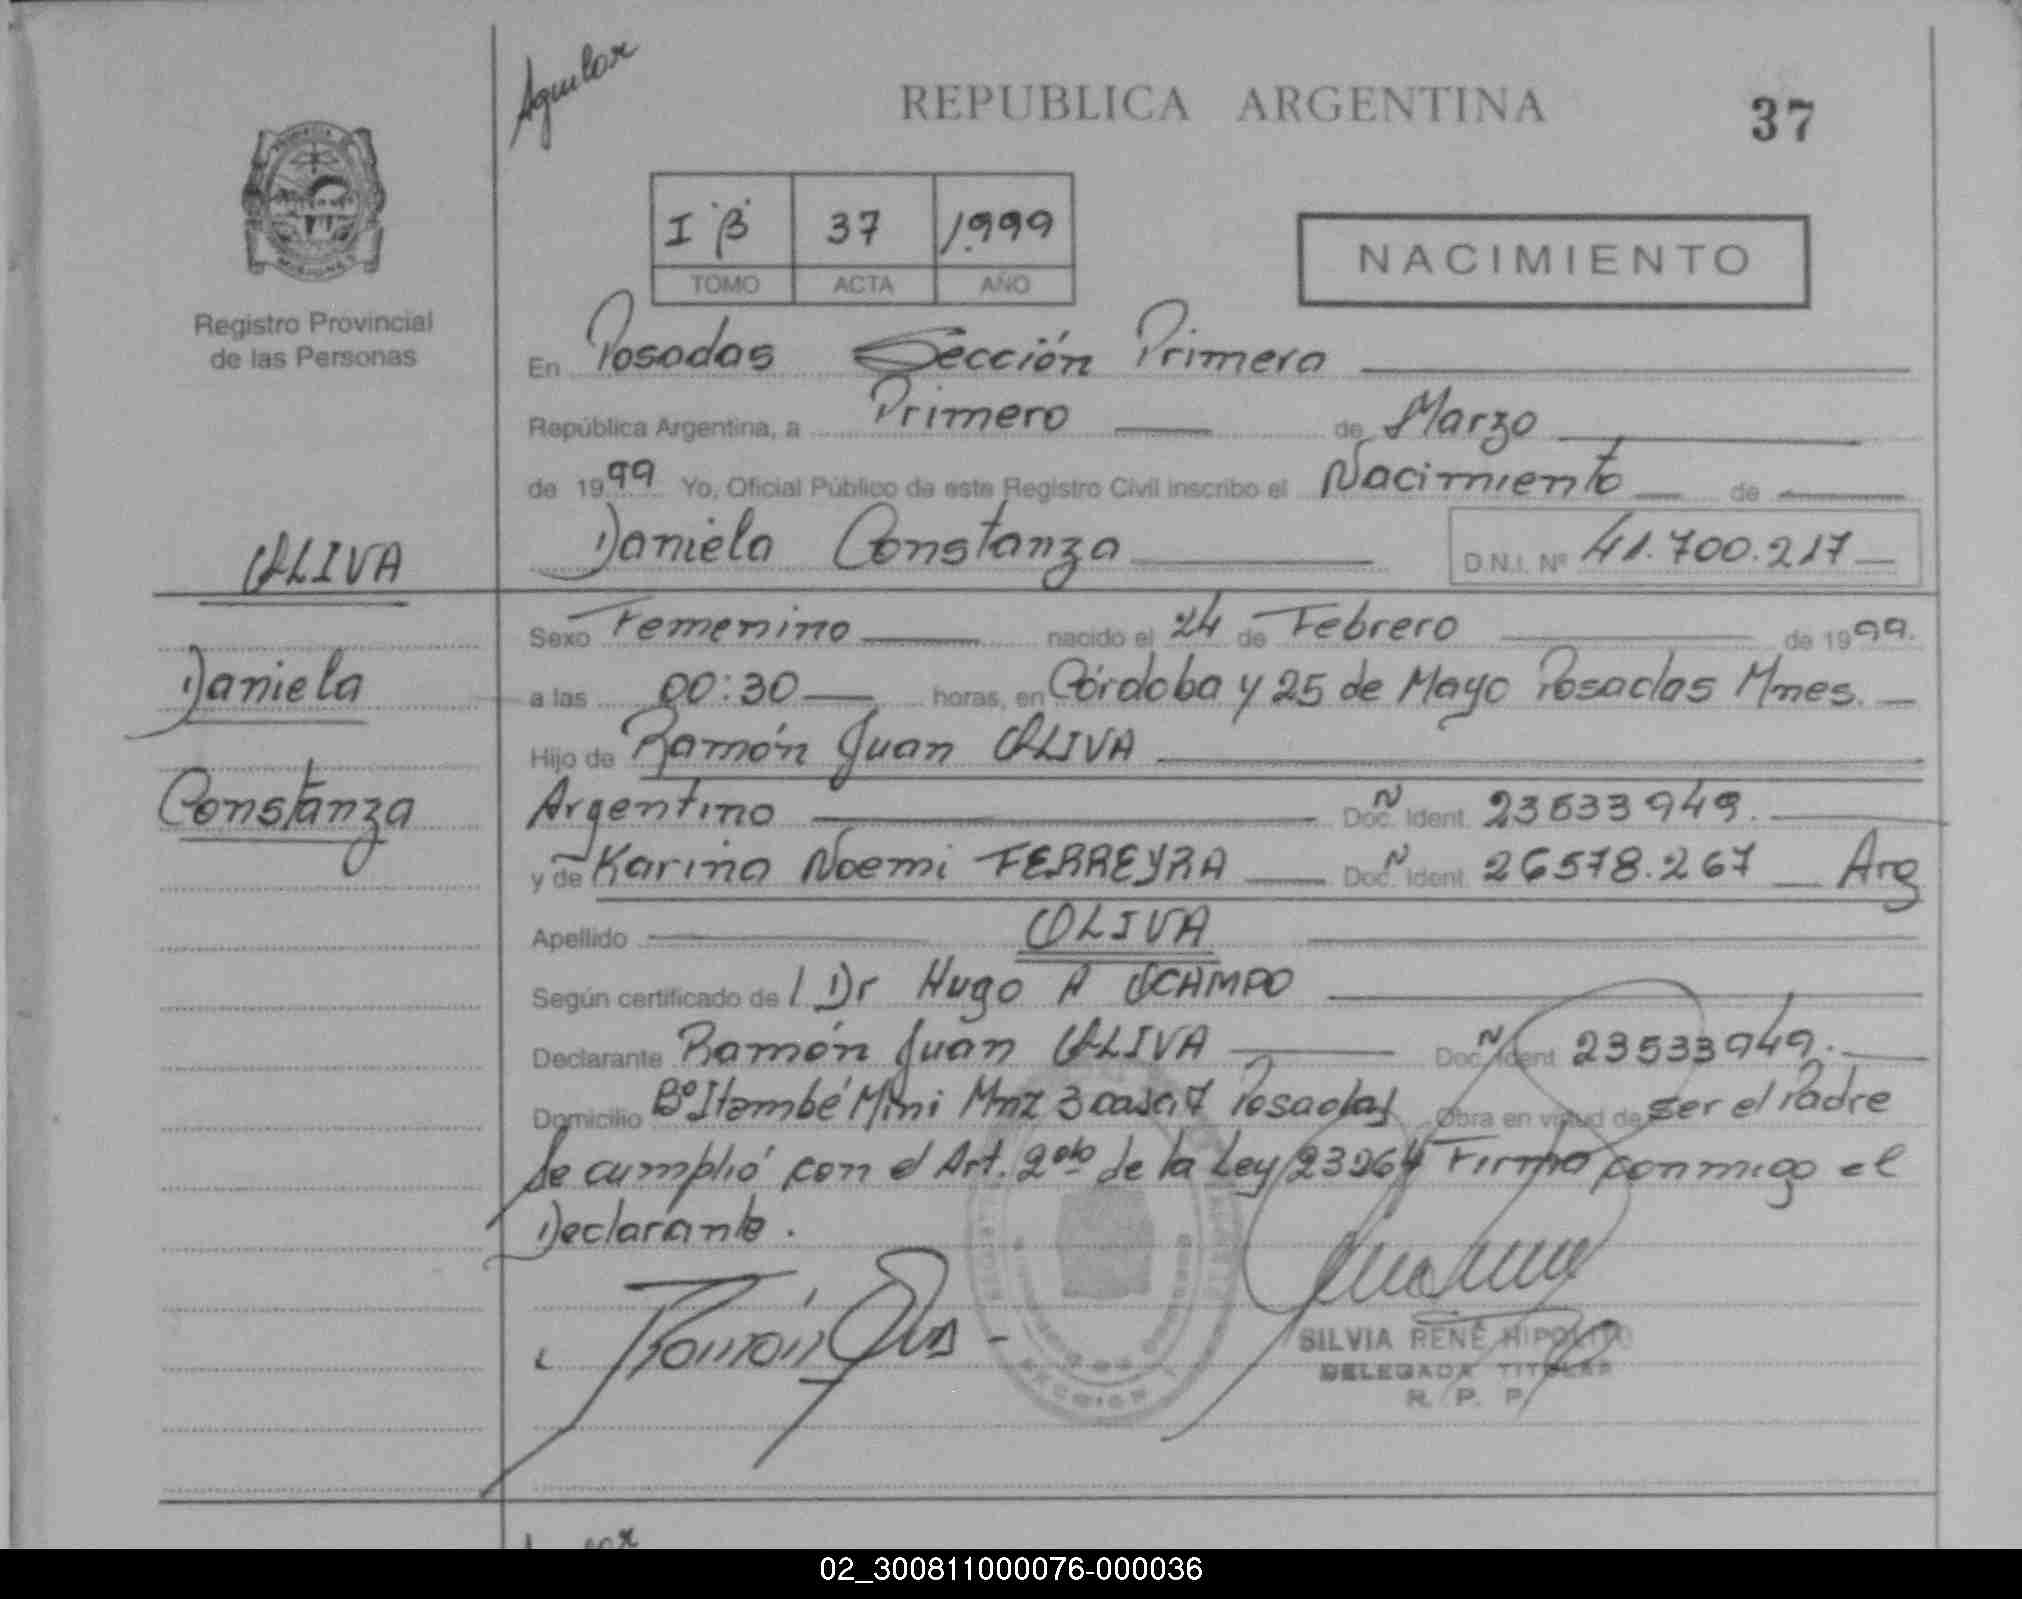 Aguilar
REPUBLICA ARGENTINA
37
I B 37 1.999
TOMO ACTA AÑO
NACIMIENTO
Registro Provincial
de las Personas
En Posadas Sección Primera
República Argentina, a Primero de Marzo
de 1999 Yo, Oficial Público de este Registro Civil inscribo el Nacimiento de
Daniela Constanza D.N.I. Nº 41.700.217
OLIVA
Daniela
Constanza
Sexo Femenino nacido el 24 de Febrero de 1999.
a las 00:30 horas, en Córdoba y 25 de Mayo Posadas Mnes.
Hijo de Ramón Juan OLIVA
Argentino Doc. Ident. 23533949.
y de Karina Noemi FERREYRA Doc. Ident. 26578.267 Arg
Apellido OLIVA
Según certificado de Dr Hugo A OCAMPO
Declarante Ramón Juan OLIVA Doc. Ident 23533949.
Domicilio Bº Itambé Mini Mnz 3 casa 7 Posadas Obra en virtud de ser el Padre
Se cumplió con el Art. 2do de la Ley 23264 Firma conmigo el
Declarante.
Ramón Oliva
SILVIA RENÉ HIPOLITO
DELEGADA TITULAR
R. P. P.
02_300811000076-000036